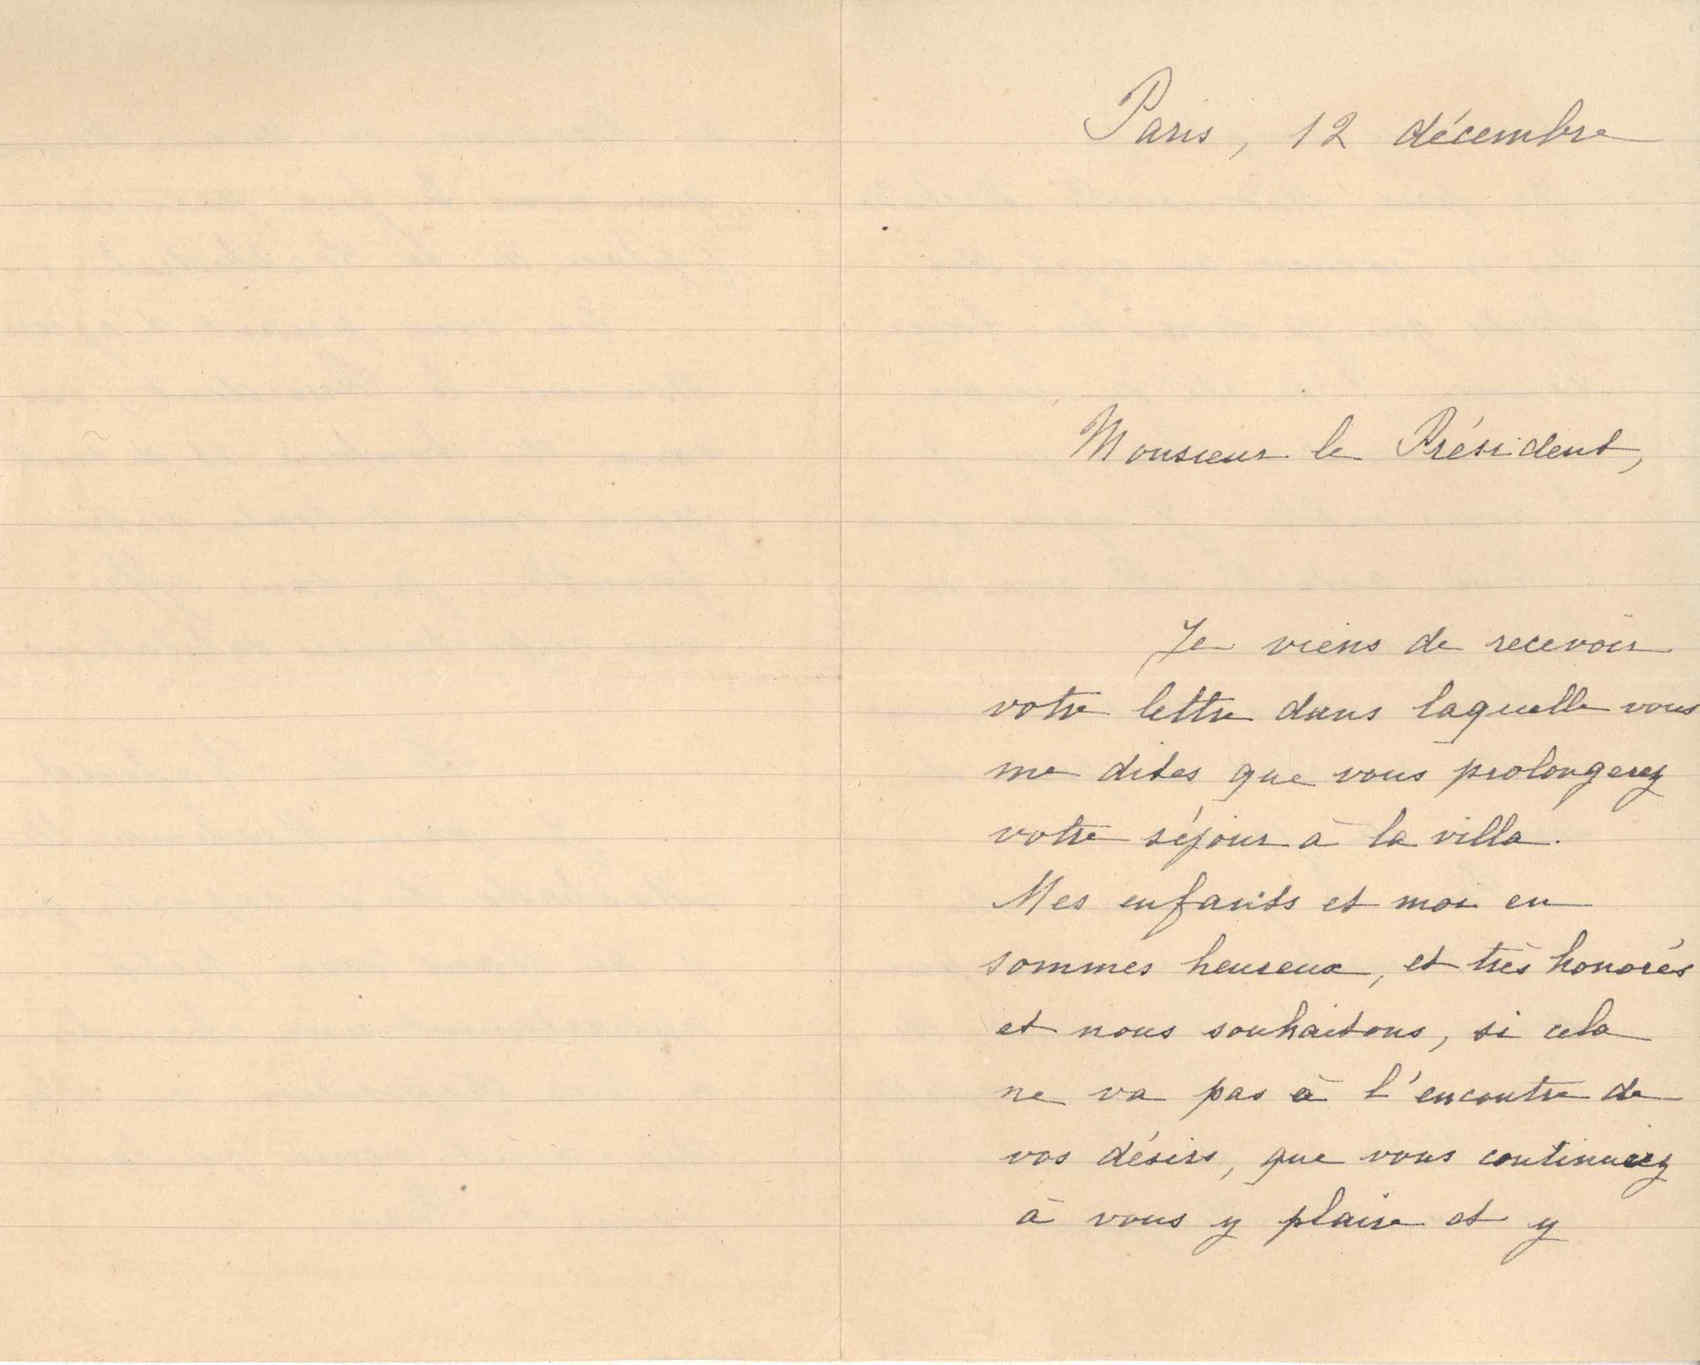 Paris, 12 décembre
Monsieur le Président,
Je viens de recevoir
votre lettre dans laquelle vous
me dites que vous prolongerez
votre séjour à la villa.
Mes enfants et moi en
sommes heureux, et très honorés
et nous souhaitons, si cela
ne va pas à l'encontre de
vos désirs, que vous continuiez
à vous y plaire et y